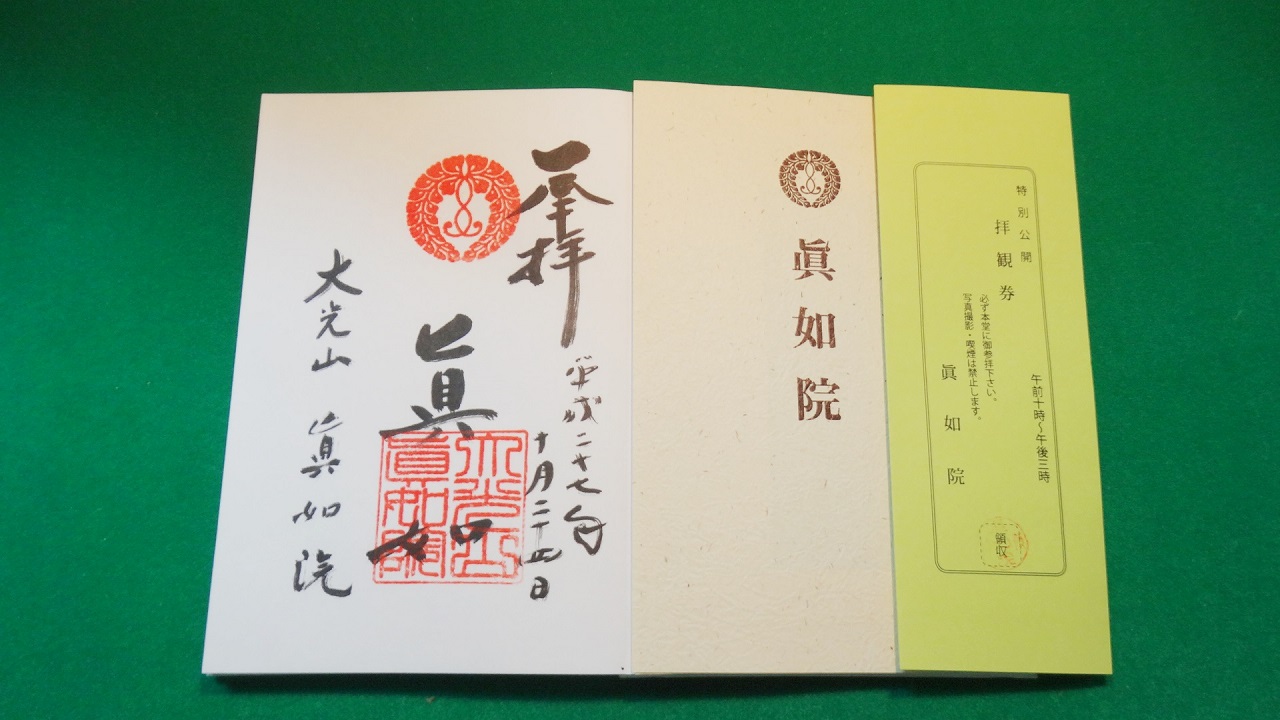 奉拝
平成二十七年
十月二十五日
眞如
大光山
眞如院
大光山
眞如院
眞如院
特別公開
拝観券
午前十時～午後三時
必ず本堂に御参拝下さい。
写真撮影・喫煙は禁止します。
眞如院
領収